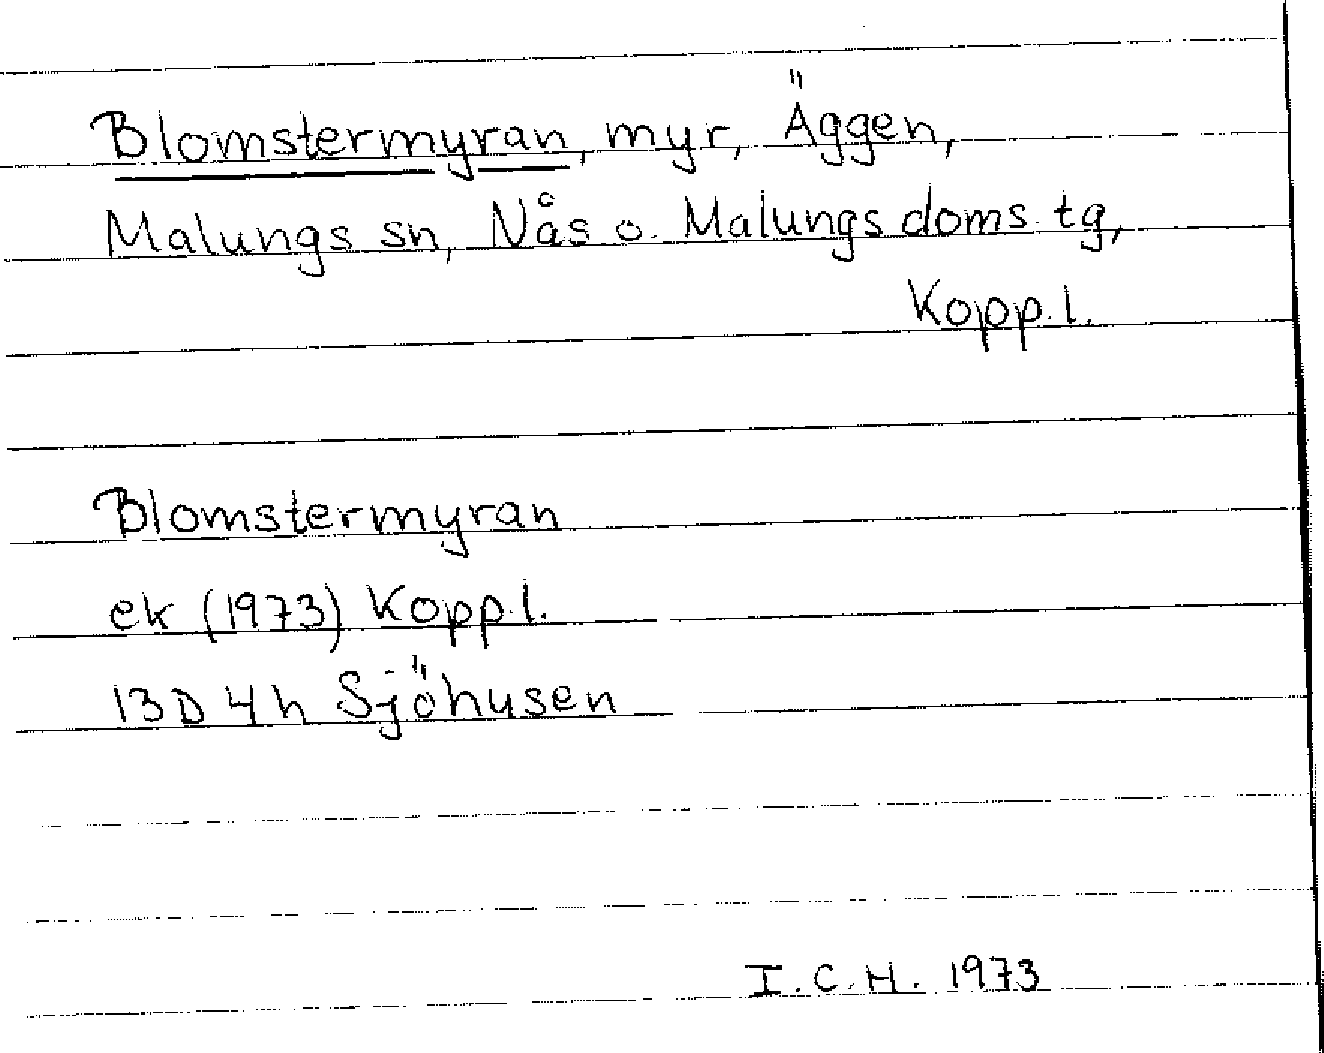 Blomstermyran, myr, Äggen,
Malungs sn, Nås o. Malungs doms. tg,
Kopp. l.
Blomstermyran
ek (1973) Kopp. l.
13D 4h Sjöhusen
I. C. H. 1973